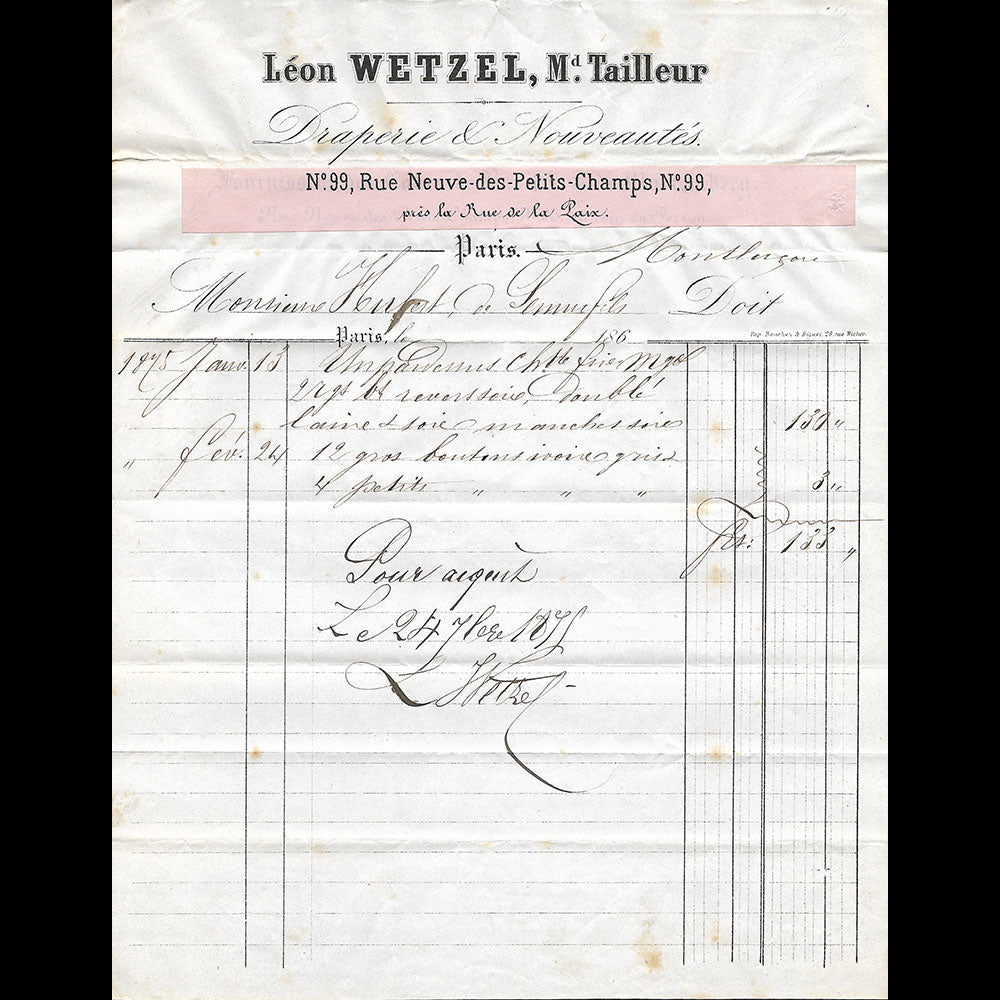 Léon WETZEL, Md. Tailleur
Draperie & Nouveautés.
No. 99, Rue Neuve-des-Petits-Champs, No. 99,
près la Rue de la Paix.
Paris.
Monsieur de Doit
Imp. Bouchet & Biguet, 26, rue Richer.
Paris, le 186
1875 Janv. 13 Un pardessus
2 rgs bt revers soie, doublé
laine & soie, manches soie 130 "
" fév. 24 12 gros boutons ivoire gris
4 petits " " " 3 "
fcs: 133 "
Pour acquit
Le 24 7bre 1875
L Wetzel